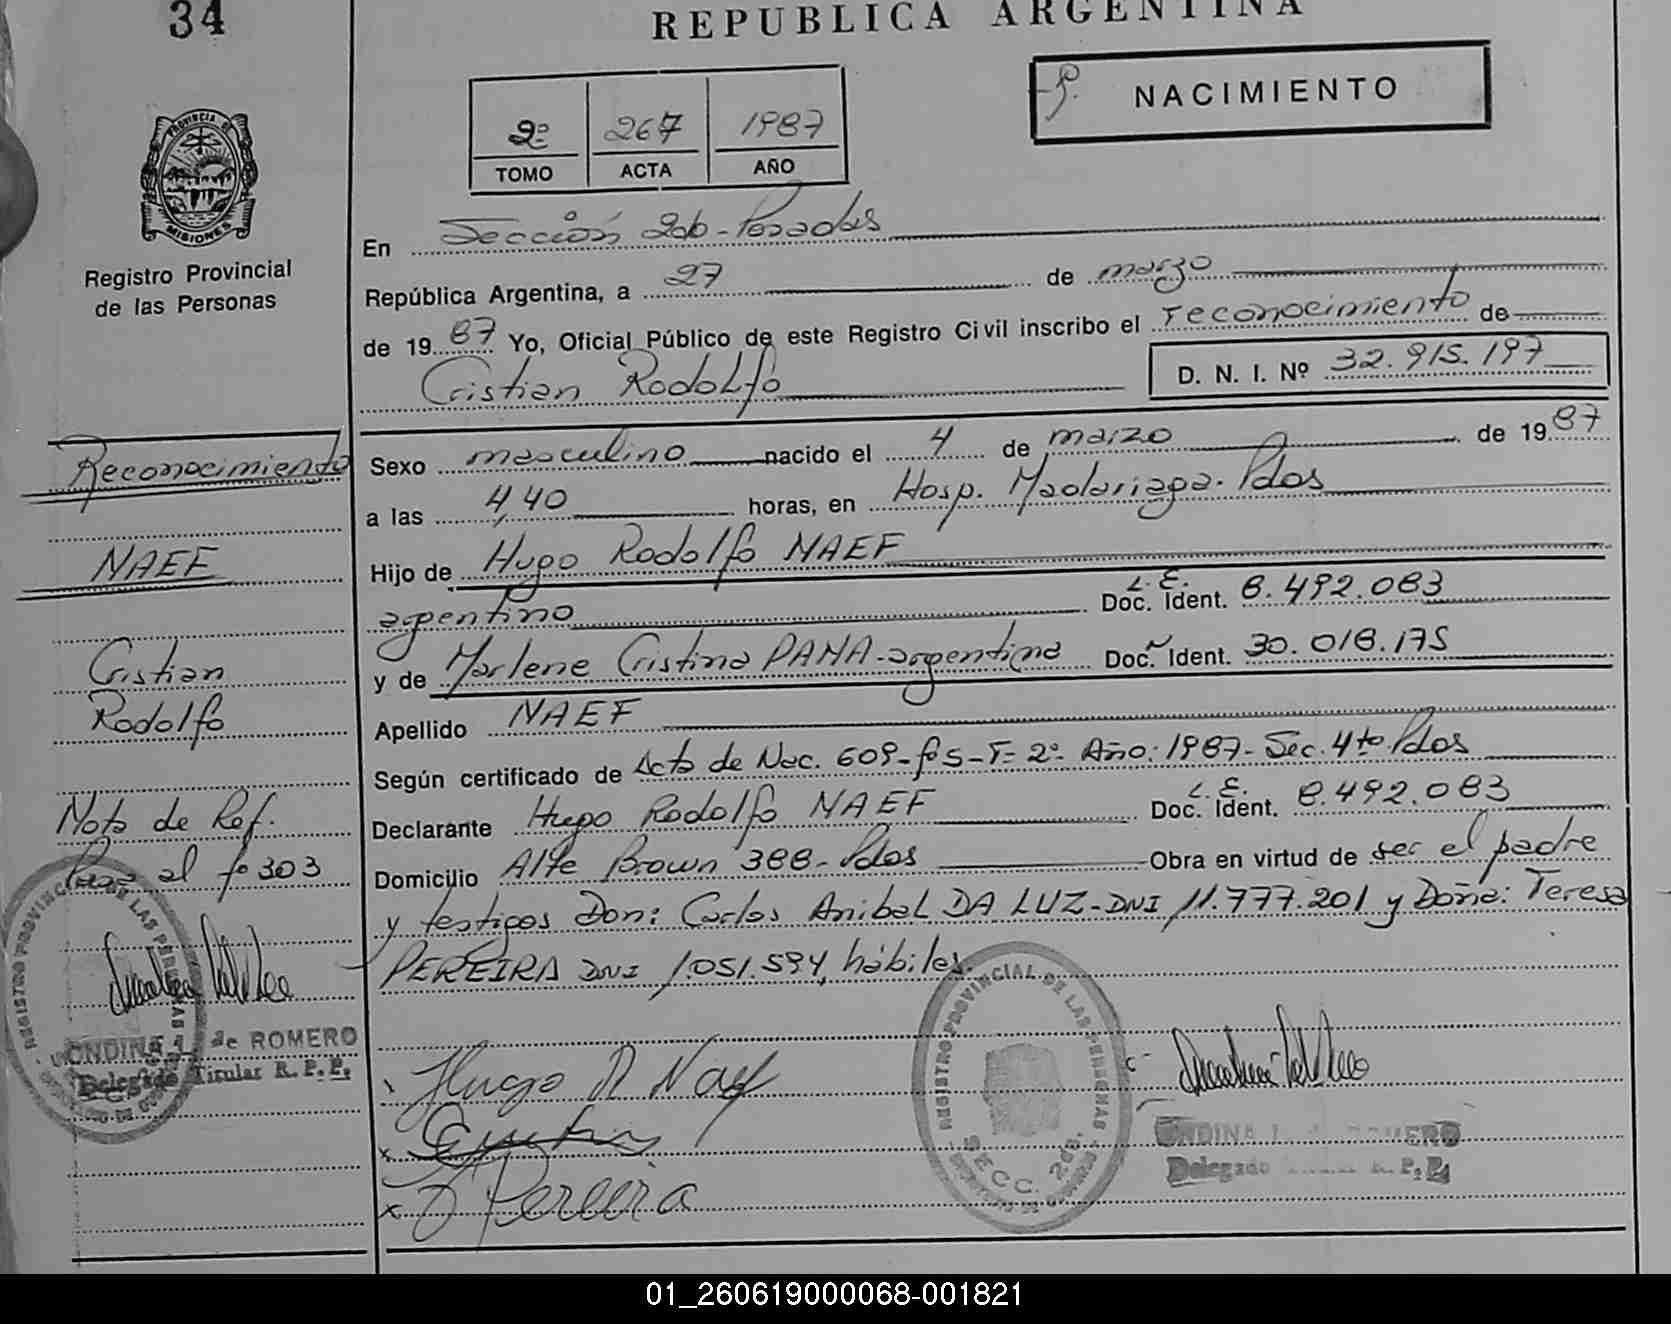 34
REPUBLICA ARGENTINA
NACIMIENTO
2º 267 1987
TOMO ACTA AÑO
PROVINCIA DE
MISIONES
Registro Provincial
de las Personas
En Sección 2da-Posadas
República Argentina, a 27 de marzo
de 1987 Yo, Oficial Público de este Registro Civil inscribo el reconocimiento de
Cristian Rodolfo D. N. I. Nº 32.915.197
Sexo masculino nacido el 4 de marzo de 1987
a las 4,40 horas, en Hosp. Madariaga. Pdas
Hijo de Hugo Rodolfo NAEF
argentino L.E. Doc. Ident. 8.492.083
y de Marlene Cristina PANA-argentina Doc. Ident. 30.018.175
Apellido NAEF
Según certificado de Acta de Nac. 609-fº5-Tº 2º Año: 1987- Sec. 4ta Pdas
Declarante Hugo Rodolfo NAEF L.E. Doc. Ident. 8.492.083
Domicilio Alte Brown 388-Pdas Obra en virtud de ser el padre
y testigos Don: Carlos Anibal DA LUZ-DNI 11.777.201 y Doña: Teresa
PEREIRA DNI 1.051.594, hábiles.
Reconocimiento
NAEF
Cristian
Rodolfo
Nota de Ref.
Pasa al fº 303
REGISTRO PROVINCIAL DE LAS PERSONAS
ONDINA de ROMERO
Delegado Titular R. P. P.
Hugo R Naef
Pereira
REGISTRO PROVINCIAL DE LAS PERSONAS
SECC. 2da.
ONDINA ROMERO
Delegado R. P. P.
01_260619000068-001821